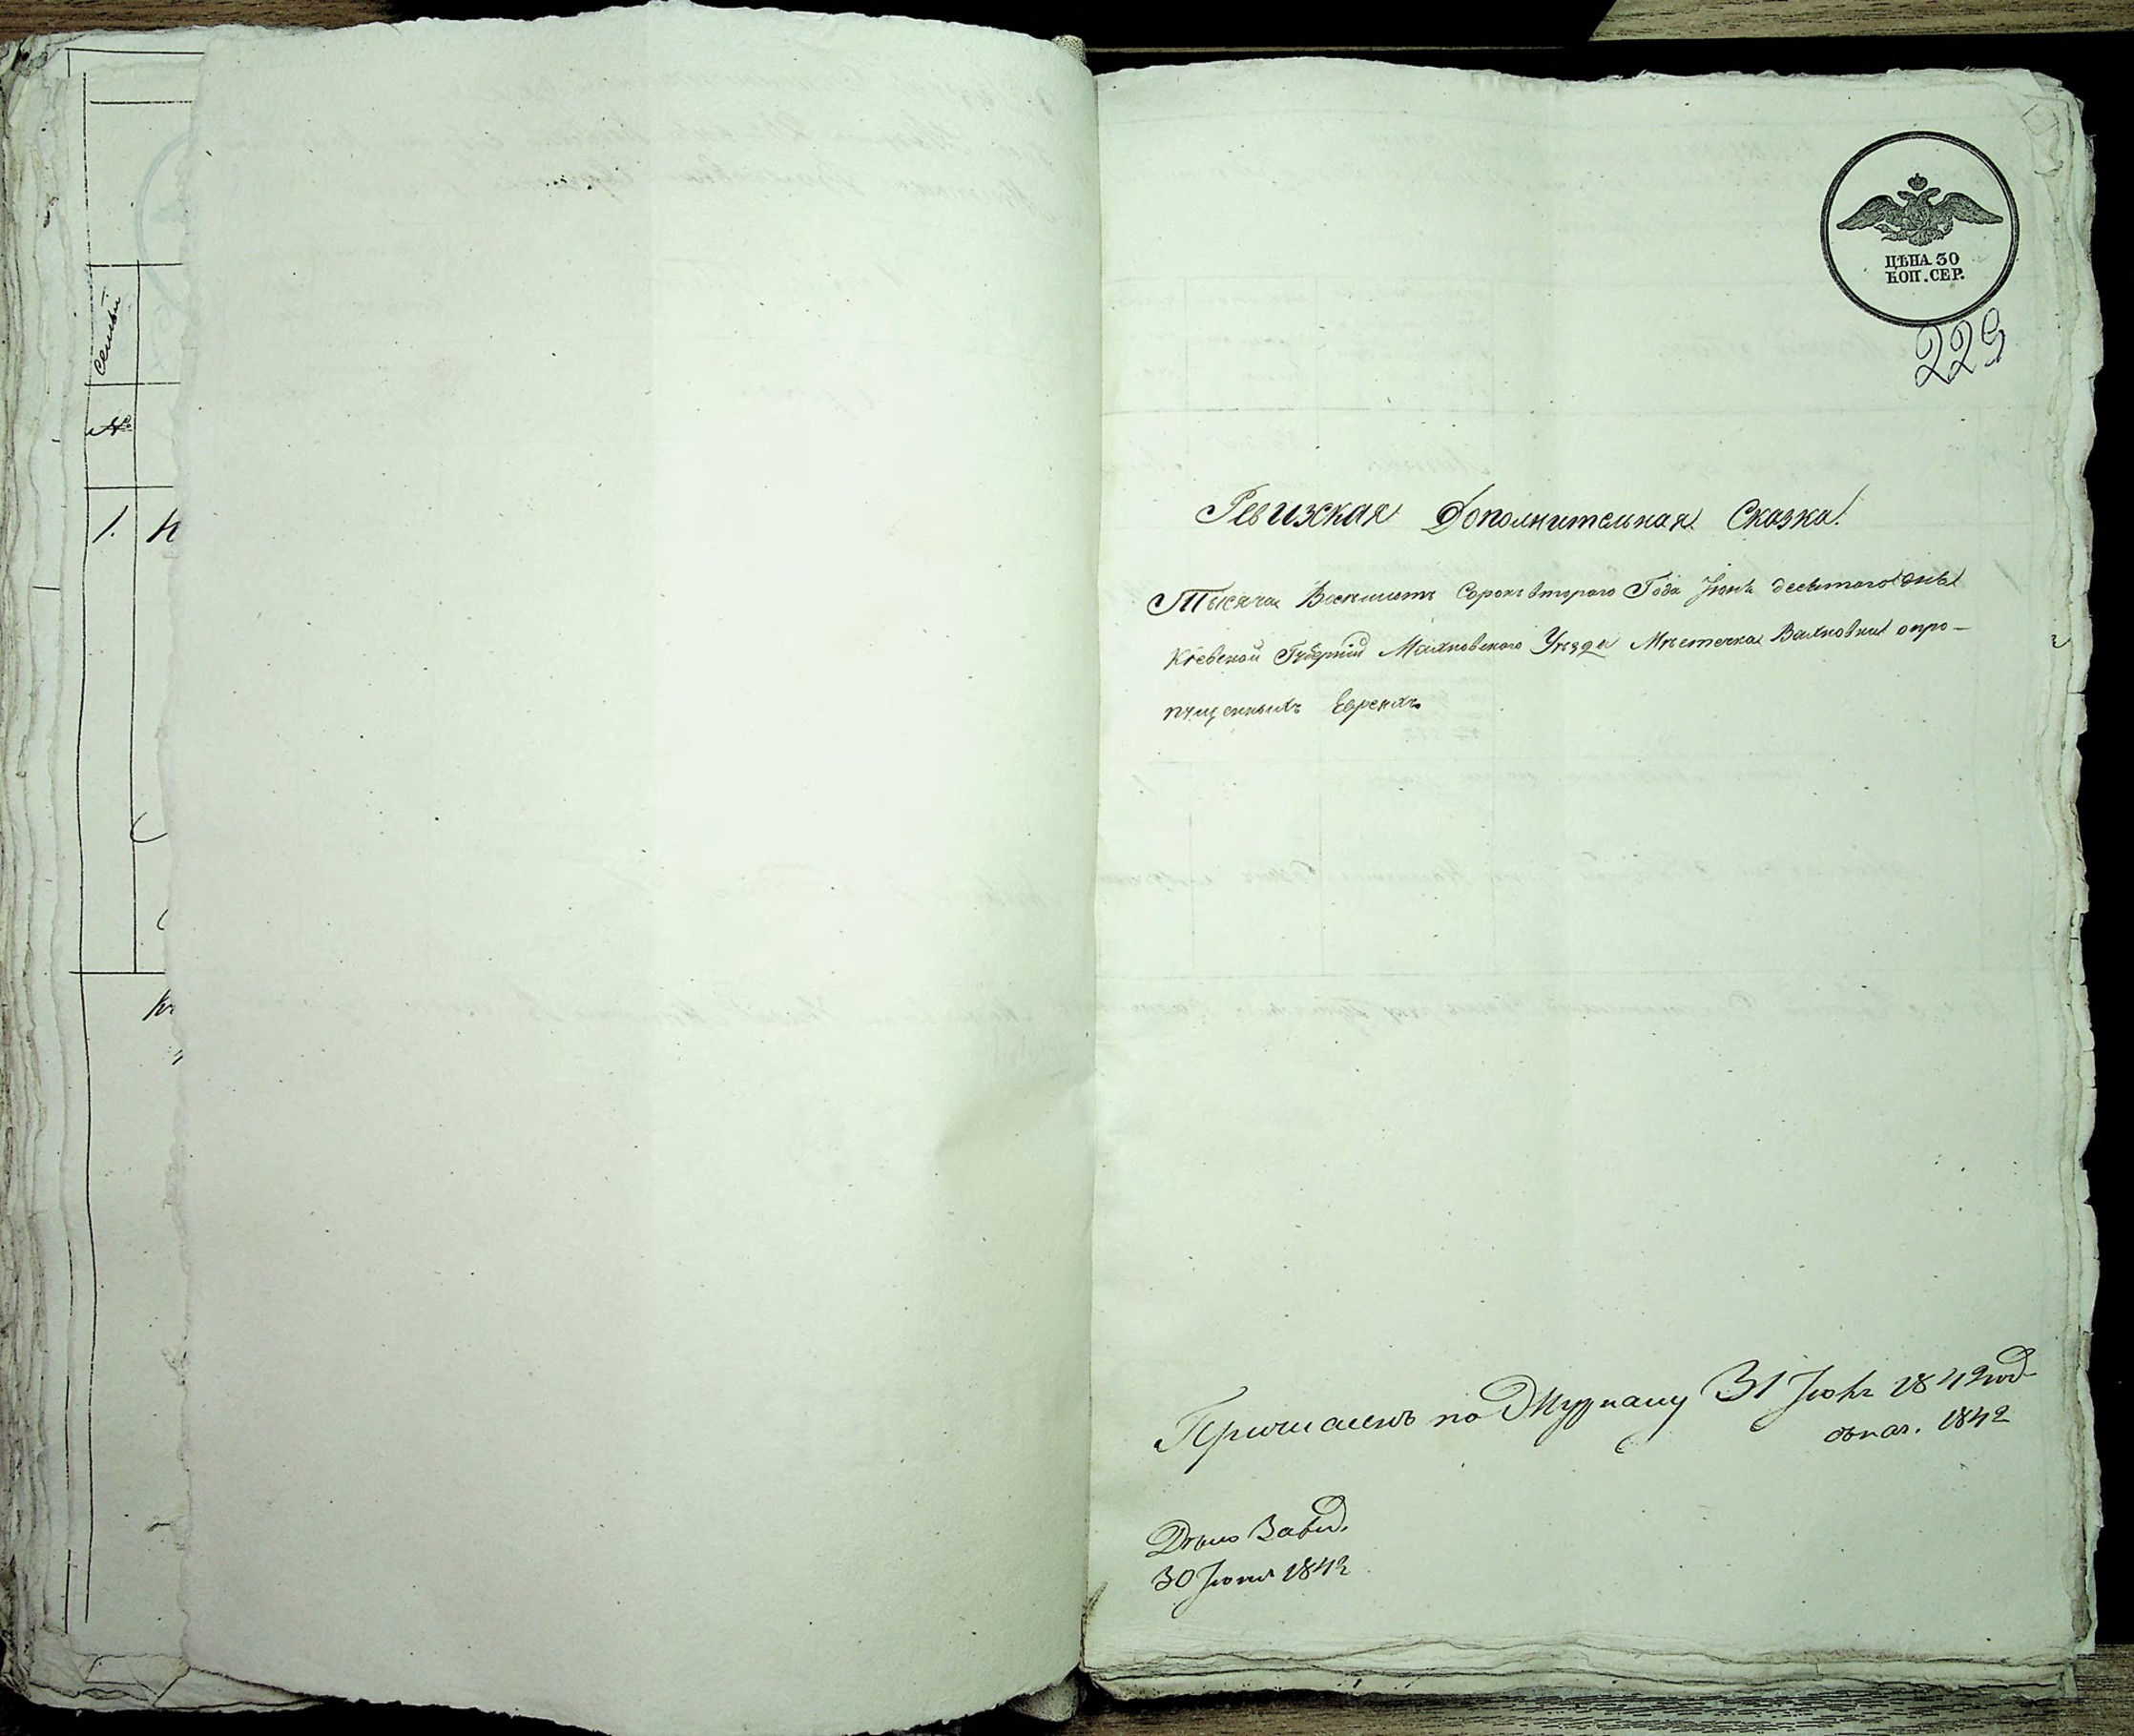 семьи
№
1.
ЦѢНА 30
КОП. СЕР.
229
Ревизская Дополнительная Сказка.
Тысяча Восемьсотъ Сорокъ второго Года Іюня десятого дня
Кіевской Губерніи Махновского Уѣзда Мѣстечка Вахновки опро-
пущенныхъ Евреяхъ
по Журналу 31 1842 год
1842
30 Іюня 1842